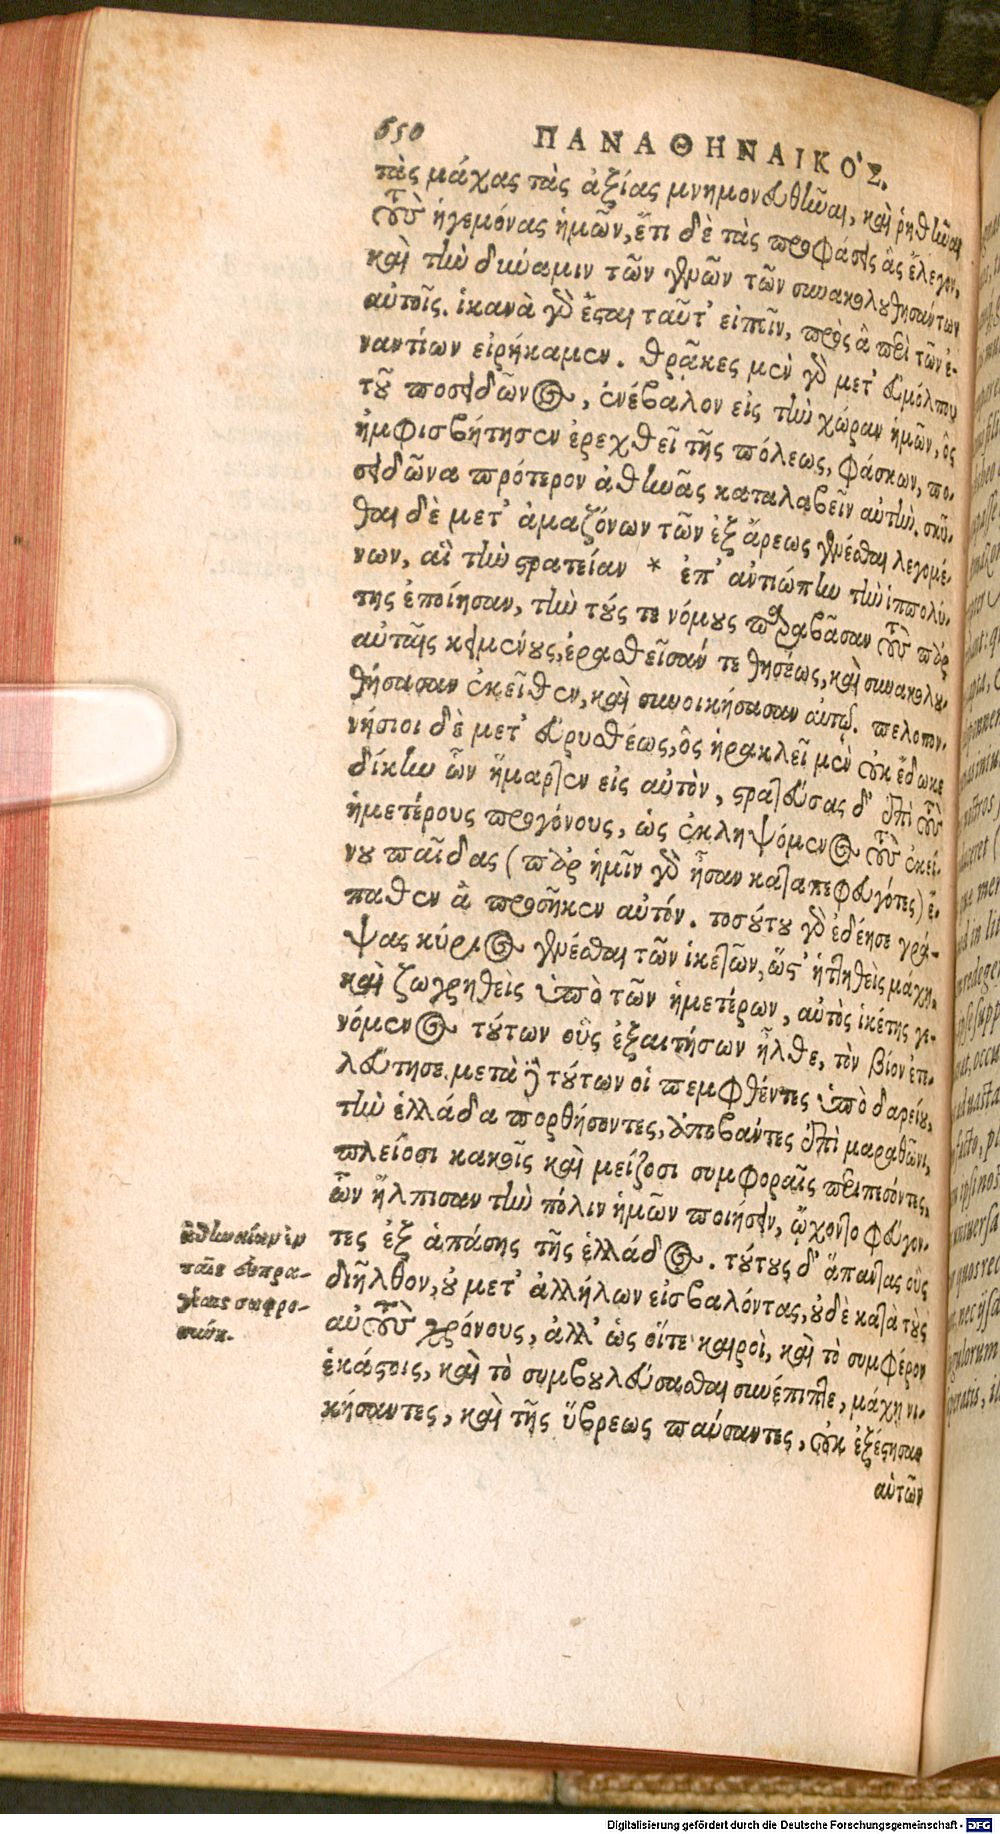 650 ΠΑΝΑΘΗΝΑΙΚΟ'Σ.
τὰς μάχας τὰς ἀξίας μνημονευθῆναι, καὶ ῥηθῆναι
τοὺς ἡγεμόνας ἡμῶν, ἔτι δὲ τὰς προφάσεις ἃς ἔλεγον,
καὶ τὴν δύναμιν τῶν γενῶν τῶν συνακολουθησάντων
αὐτοῖς. ἱκανὰ γὰρ ἔσται ταῦτ' εἰπεῖν, πρὸς ἃ περὶ τῶν ἐ-
ναντίων εἰρήκαμεν. Θρᾷκες μὲν γὰρ μετ' εὐμόλπου
τοῦ ποσειδῶνος, ἐνέβαλον εἰς τὴν χώραν ἡμῶν, ὃς
ἠμφισβήτησεν ἐρεχθεῖ τῆς πόλεως, φάσκων, πο-
σειδῶνα πρότερον ἀθηνᾶς καταλαβεῖν αὐτήν. σκύ-
θαι δὲ μετ' ἀμαζόνων τῶν ἐξ ἄρεως γενέσθαι λεγομέ-
νων, αἳ τὴν στρατείαν * ἐπ' ἀντιώπην τὴν ἱππολύ-
της ἐποίησαν, τὴν τούς τε νόμους παραβᾶσαν τοὺς παρ'
αὐταῖς κειμένους, ἐρασθεῖσάν τε θησέως, καὶ συνακολου-
θήσασαν ἐκεῖθεν, καὶ συνοικήσασαν αὐτῷ. πελοπον-
νήσιοι δὲ μετ' εὐρυσθέως, ὃς ἡρακλεῖ μὲν οὐκ ἔδωκε
δίκην ὧν ἥμαρτεν εἰς αὐτὸν, στρατεύσας δ' ἐπὶ τοὺς
ἡμετέρους προγόνους, ὡς ἐκληψόμενος τοὺς ἐκεί-
νου παῖδας (παρ' ἡμῖν γὰρ ἦσαν καταπεφευγότες) ἔ-
παθεν ἃ προσῆκεν αὐτόν. τοσούτου γὰρ ἐδέησε γρά-
ψας κύριος γενέσθαι τῶν ἱκετῶν, ὥστ' ἡττηθεὶς μάχῃ,
καὶ ζωγρηθεὶς ὑπὸ τῶν ἡμετέρων, αὐτὸς ἱκέτης γε-
νόμενος τούτων οὓς ἐξαιτήσων ἦλθε, τὸν βίον ἐτε-
λεύτησε. μετὰ δὲ τούτων οἱ πεμφθέντες ὑπὸ δαρείου,
τὴν ἑλλάδα πορθήσοντες, ἀποβάντες ἐπὶ μαραθῶνι,
πλείοσι κακοῖς καὶ μείζοσι συμφοραῖς περιπεσόντες,
ὧν ἤλπισαν τὴν πόλιν ἡμῶν ποιήσειν, ᾤχοντο φεύγον-
τες ἐξ ἁπάσης τῆς ἑλλάδος. τούτους δ' ἅπαντας οὓς
διῆλθον, οὐ μετ' ἀλλήλων εἰσβαλόντας, οὐδὲ κατὰ τοὺς
αὐτοὺς χρόνους, ἀλλ' ὡς οἵτε καιροὶ, καὶ τὸ συμφέρον
ἑκάστοις, καὶ τὸ συμβουλεύσασθαι συνέπιπτε, μάχῃ νι-
κήσαντες, καὶ τῆς ὕβρεως παύσαντες, οὐκ ἐξέστησαν
αὐτῶν
ἀθηναίων ἐν
ταῖς εὐπρα-
γίαις σωφρο-
σύνη.
Digitalisierung gefördert durch die Deutsche Forschungsgemeinschaft - DFG